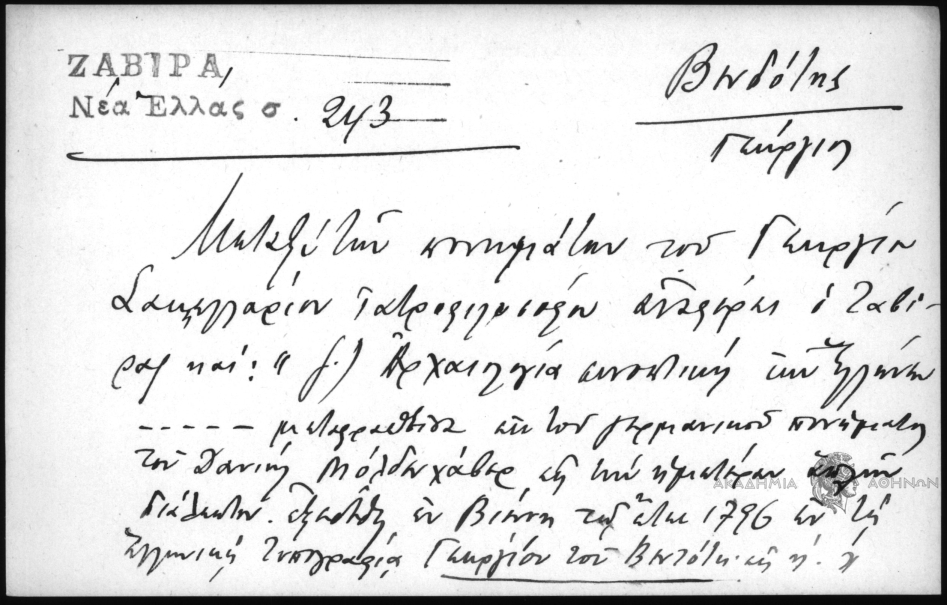 ΖΑΒΙΡΑ,
Νέα Ἑλλάς σ. 243
Βενδότης
Γεώργιος
Μεταξὺ τῶν πονημάτων τοῦ Γεωργίου
Σακελλαρίου Ἰατροφιλοσόφου ἀναφέρει ὁ Ζαβί-
ρας καί: "ζ.) Ἀρχαιολογία συνοπτικὴ τῶν Ἑλλήνων
----- μεταφρασθεῖσα ἐκ τοῦ γερμανικοῦ πονήματος
τοῦ Δανιὴλ Μόλδενχάβερ εἰς τὴν ἡμετέραν ἁπλῆν
διάλεκτον. ἐξεδόθη ἐν Βιέννῃ τῷ ἔτει 1796 ἐν τῇ
Ἑλληνικῇ τυπογραφίᾳ Γεωργίου τοῦ Βεντότη. εἰς η.
ΑΚΑΔΗΜΙΑ ΑΘΗΝΩΝ